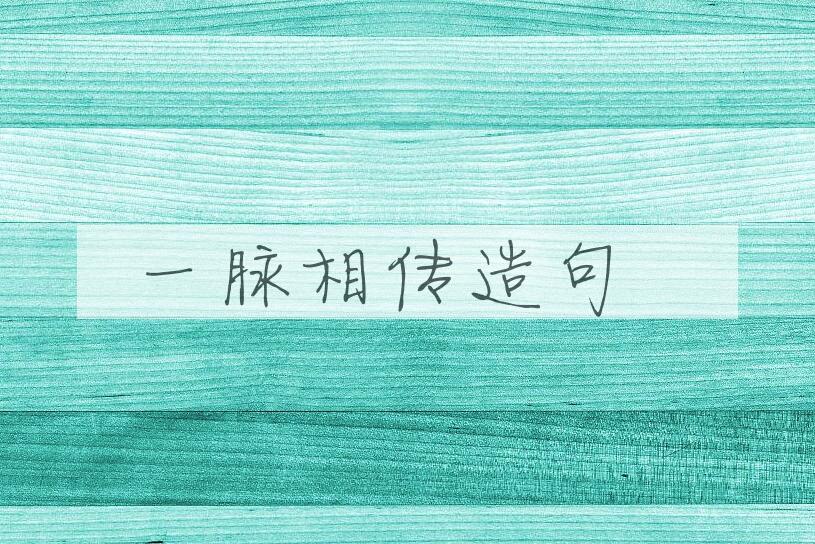 一脉相传造句